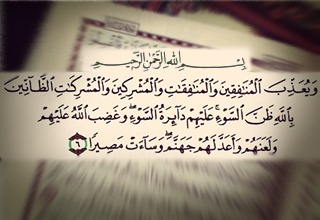 بِسْمِ اللَّهِ الرَّحْمَٰنِ الرَّحِيمِ
وَيُعَذِّبَ الْمُنَافِقِينَ وَالْمُنَافِقَاتِ وَالْمُشْرِكِينَ وَالْمُشْرِكَاتِ الظَّانِّينَ
بِاللَّهِ ظَنَّ السَّوْءِ ۚ عَلَيْهِمْ دَائِرَةُ السَّوْءِ ۖ وَغَضِبَ اللَّهُ عَلَيْهِمْ
وَلَعَنَهُمْ وَأَعَدَّ لَهُمْ جَهَنَّمَ ۖ وَسَاءَتْ مَصِيرًا ٦